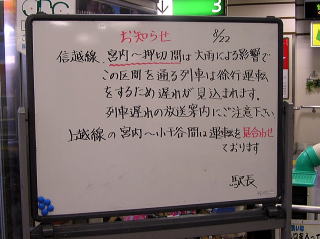 3
お知らせ
8/22
信越線 宮内～押切間は大雨による影響で
この区間を通る列車は徐行運転
をするため遅れが見込まれます.
列車遅れの放送案内にご注意下さい
上越線の宮内～小千谷間は運転を見合わせ
ております
駅長